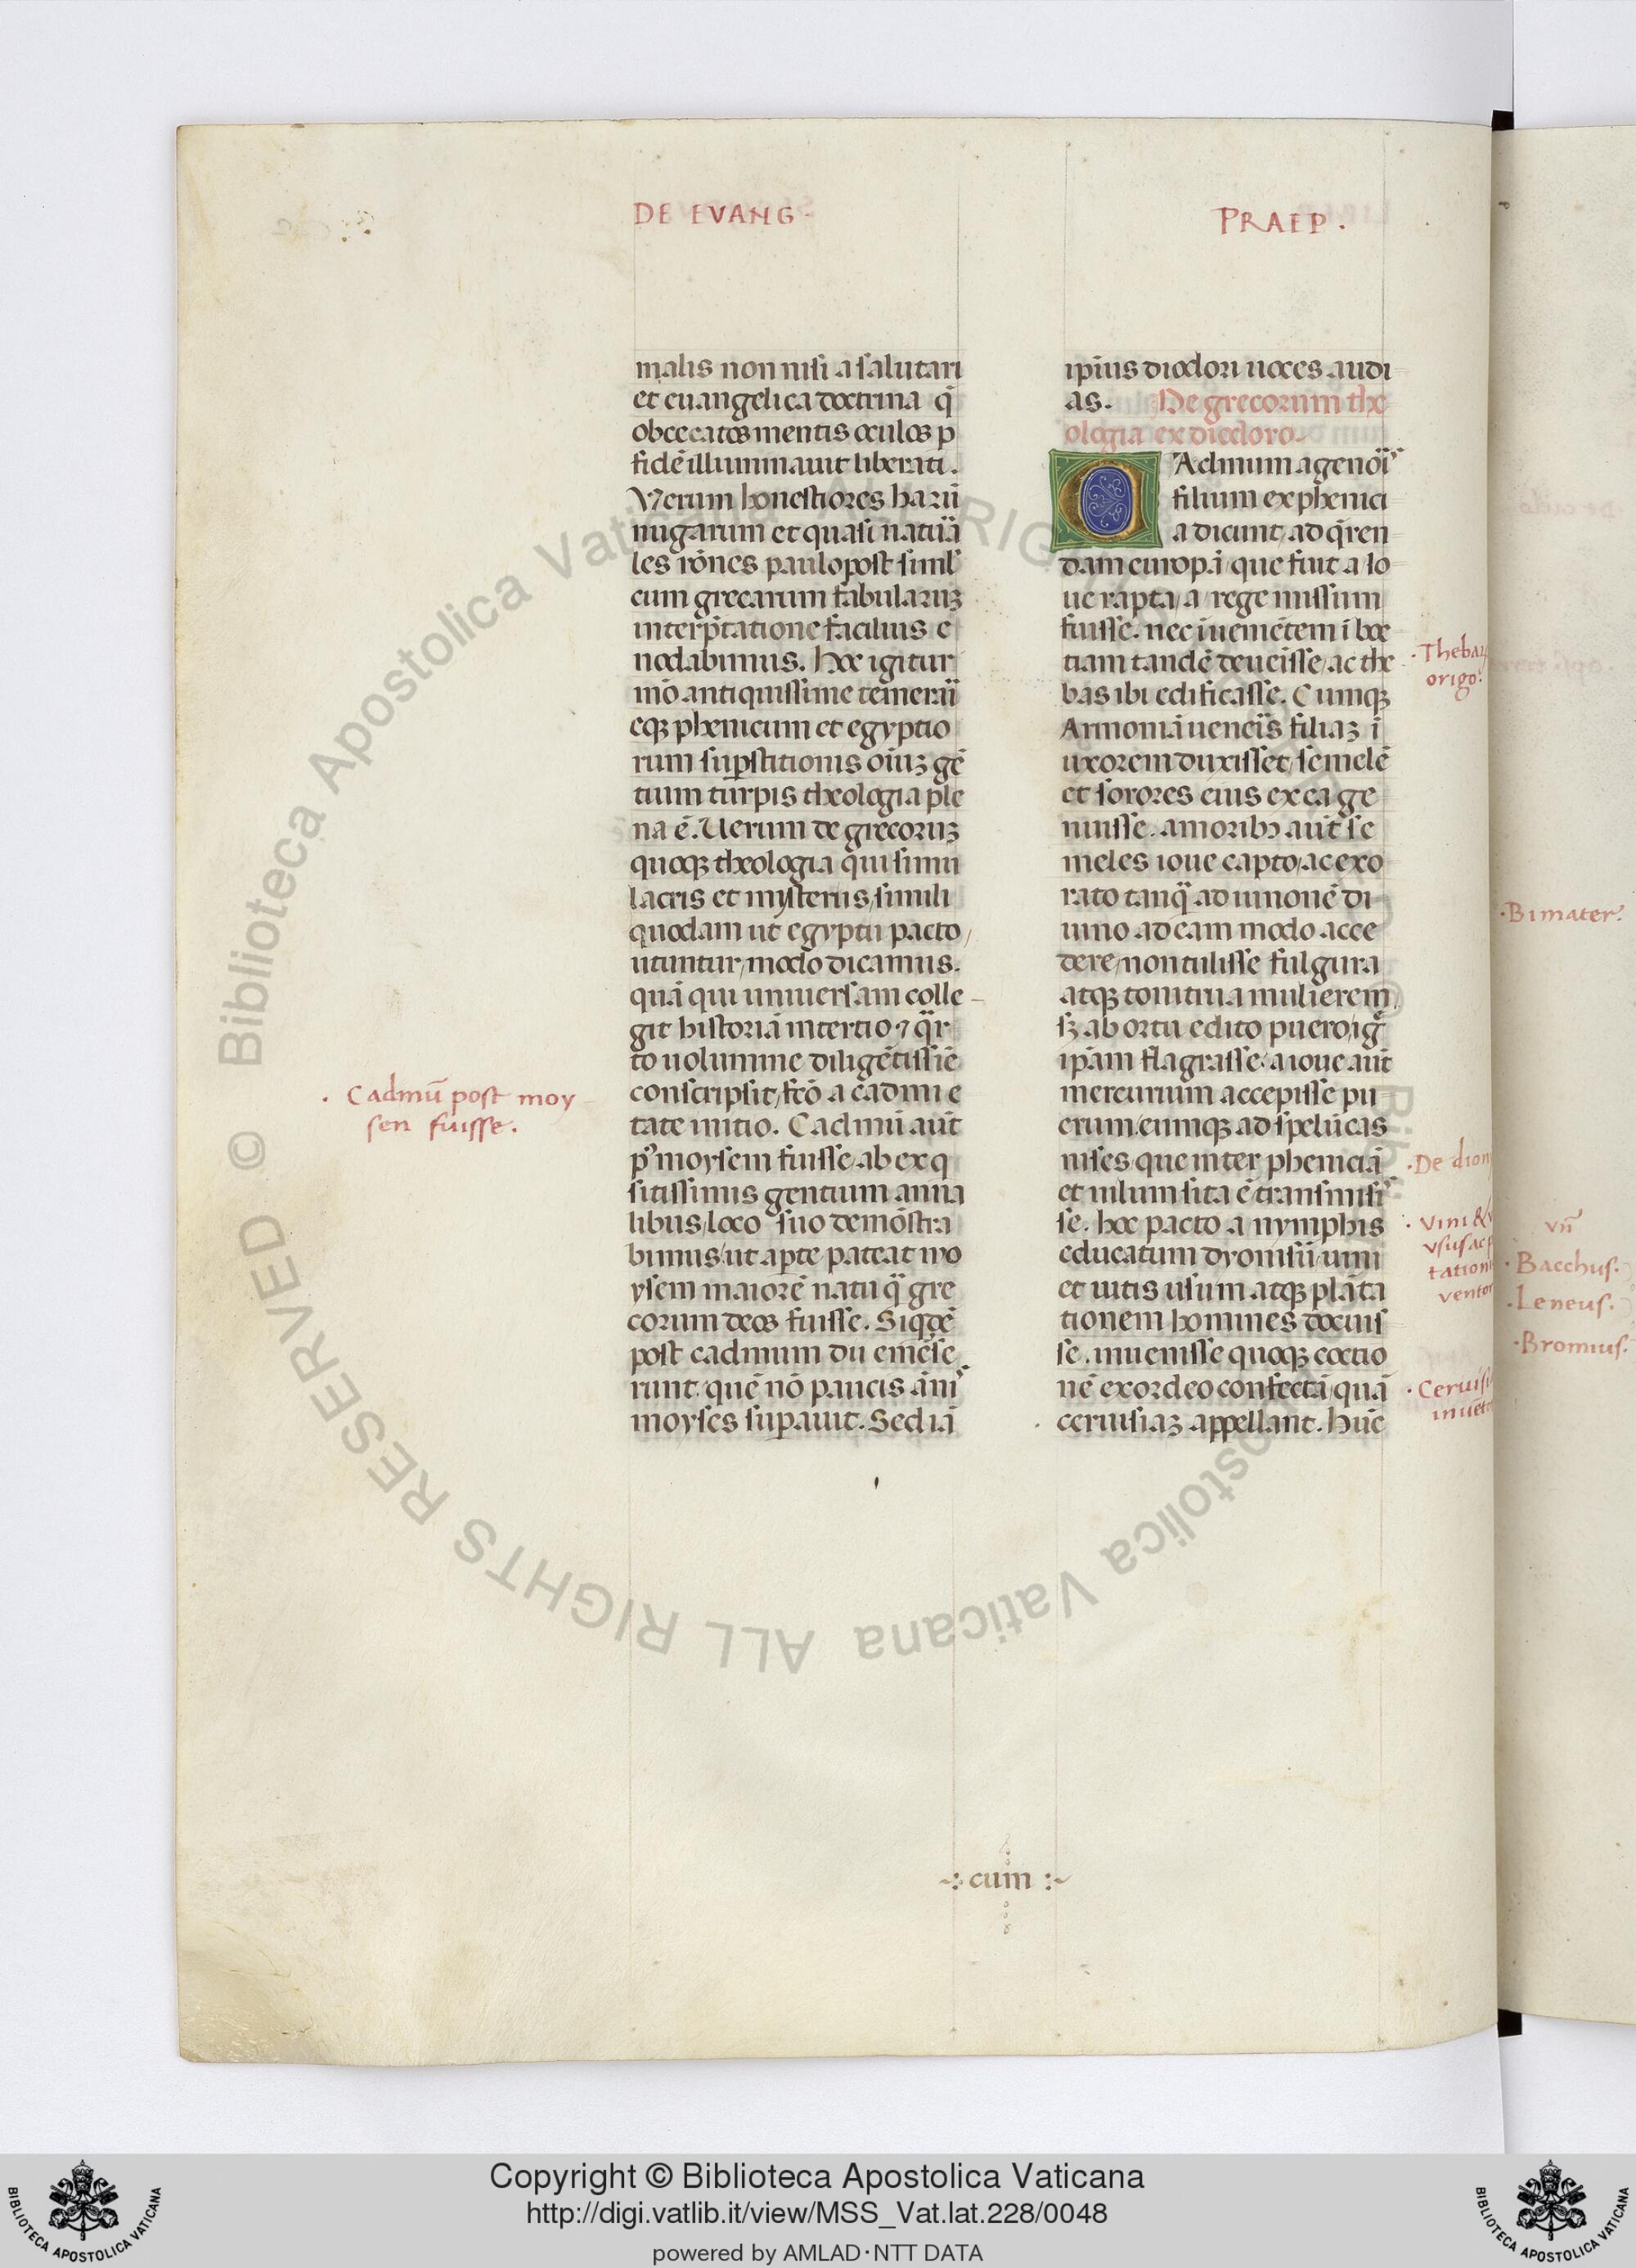 DE EVANG.
malis non nisi a salutari
et euangelica doctrina q̄
obcecatos mentis oculos p
fidē illuminauit liberati.
Verum honestiores harū
nugarum et quasi natūa
les rōnes paulopost siml᾽
cum grecarum fabularuꝫ
interp̄tatione facilius e
nodabimus. hoc igitur
mō antiquissime temerar̄
eqꝫ phenicum et egyptio
rum sup̱stitionis oīuꝫ gē
tium turpis theologia ple
na ē. Uerum de grecoruꝫ
quoqꝫ theologia qui simu
lacris et mysteriis/simili
quodam ut egyptii pacto/
utuntur/modo dicamus.
quā qui uniuersam colle-
git historiā in tertio ⁊ q̄r
to uolumine diligētissīe
conscripsit/fcō a cadmi e
tate initio. Cadmū aūt
p᾽ moysem fuisse/ab exq
sitissimus gentium anna
libus/loco suo demōstra
bimus/ut ap̱te pateat mo
ysem maiorē natu q̄ gre
corum deos fuisse. Siqdē
post cadmum dii emēse
runt. quē nō paucis ānis
moyses sup̱auit. Sed iā
. Cadmū post moy
sen fuisse.
PRAEP.
ipīus diodori uoces audi
as. De grecorum the
ologia ex diodoro.
CAdmum agenoīs
filium ex phenici
a dicunt/ad q̄ren
dam europā/que fuit a Io
ue rapta/a rege missum
fuisse. nec īuemētem ī boe
tiam tandē deueisse/ac the
bas ibi edificasse. Cumqꝫ
Armoniā ueneīs filiaꝫ ī
uxorem duxisset/semelē
et sorores eius ex ea ge
nuisse. amoribꝫ aūt se
meles ioue capto/ac exo
rato tanq̄ ad iunonē di
uino ad eam modo acce
dere/non tulisse fulgura
atqꝫ tonitrua mulierem
sꝫ abortu edito puero/ig
ipām flagrasse. a ioue aūt
mercurium accepisse pu
erum/eumqꝫ ad spelūcas
nises/que inter pheniciā
et nilum sita ē transmisi
se. hoc pacto a nymphis
educatum dyonisiū/uini
et uitis usum atqꝫ plāta
tionem homines docuis
se. inuenisse quoqꝫ coctio
nē ex ordeo confectā/quā
ceruisiaꝫ appellant. hūc
. Thebaꝝ
origo.
. De dion
. Vini &
vsus ac p
tation
ventor
. Ceruisi
inuēt
-:· cum :~
. Bimater.
vn̄
. Bacchus.
. Leneus.
. Bromius.
Biblioteca Apostolica Vaticana ALL RIGHTS RESERVED ©
Copyright © Biblioteca Apostolica Vaticana
http://digi.vatlib.it/view/MSS_Vat.lat.228/0048
powered by AMLAD·NTT DATA
BIBLIOTECA APOSTOLICA VATICANA
BIBLIOTECA APOSTOLICA VATICANA